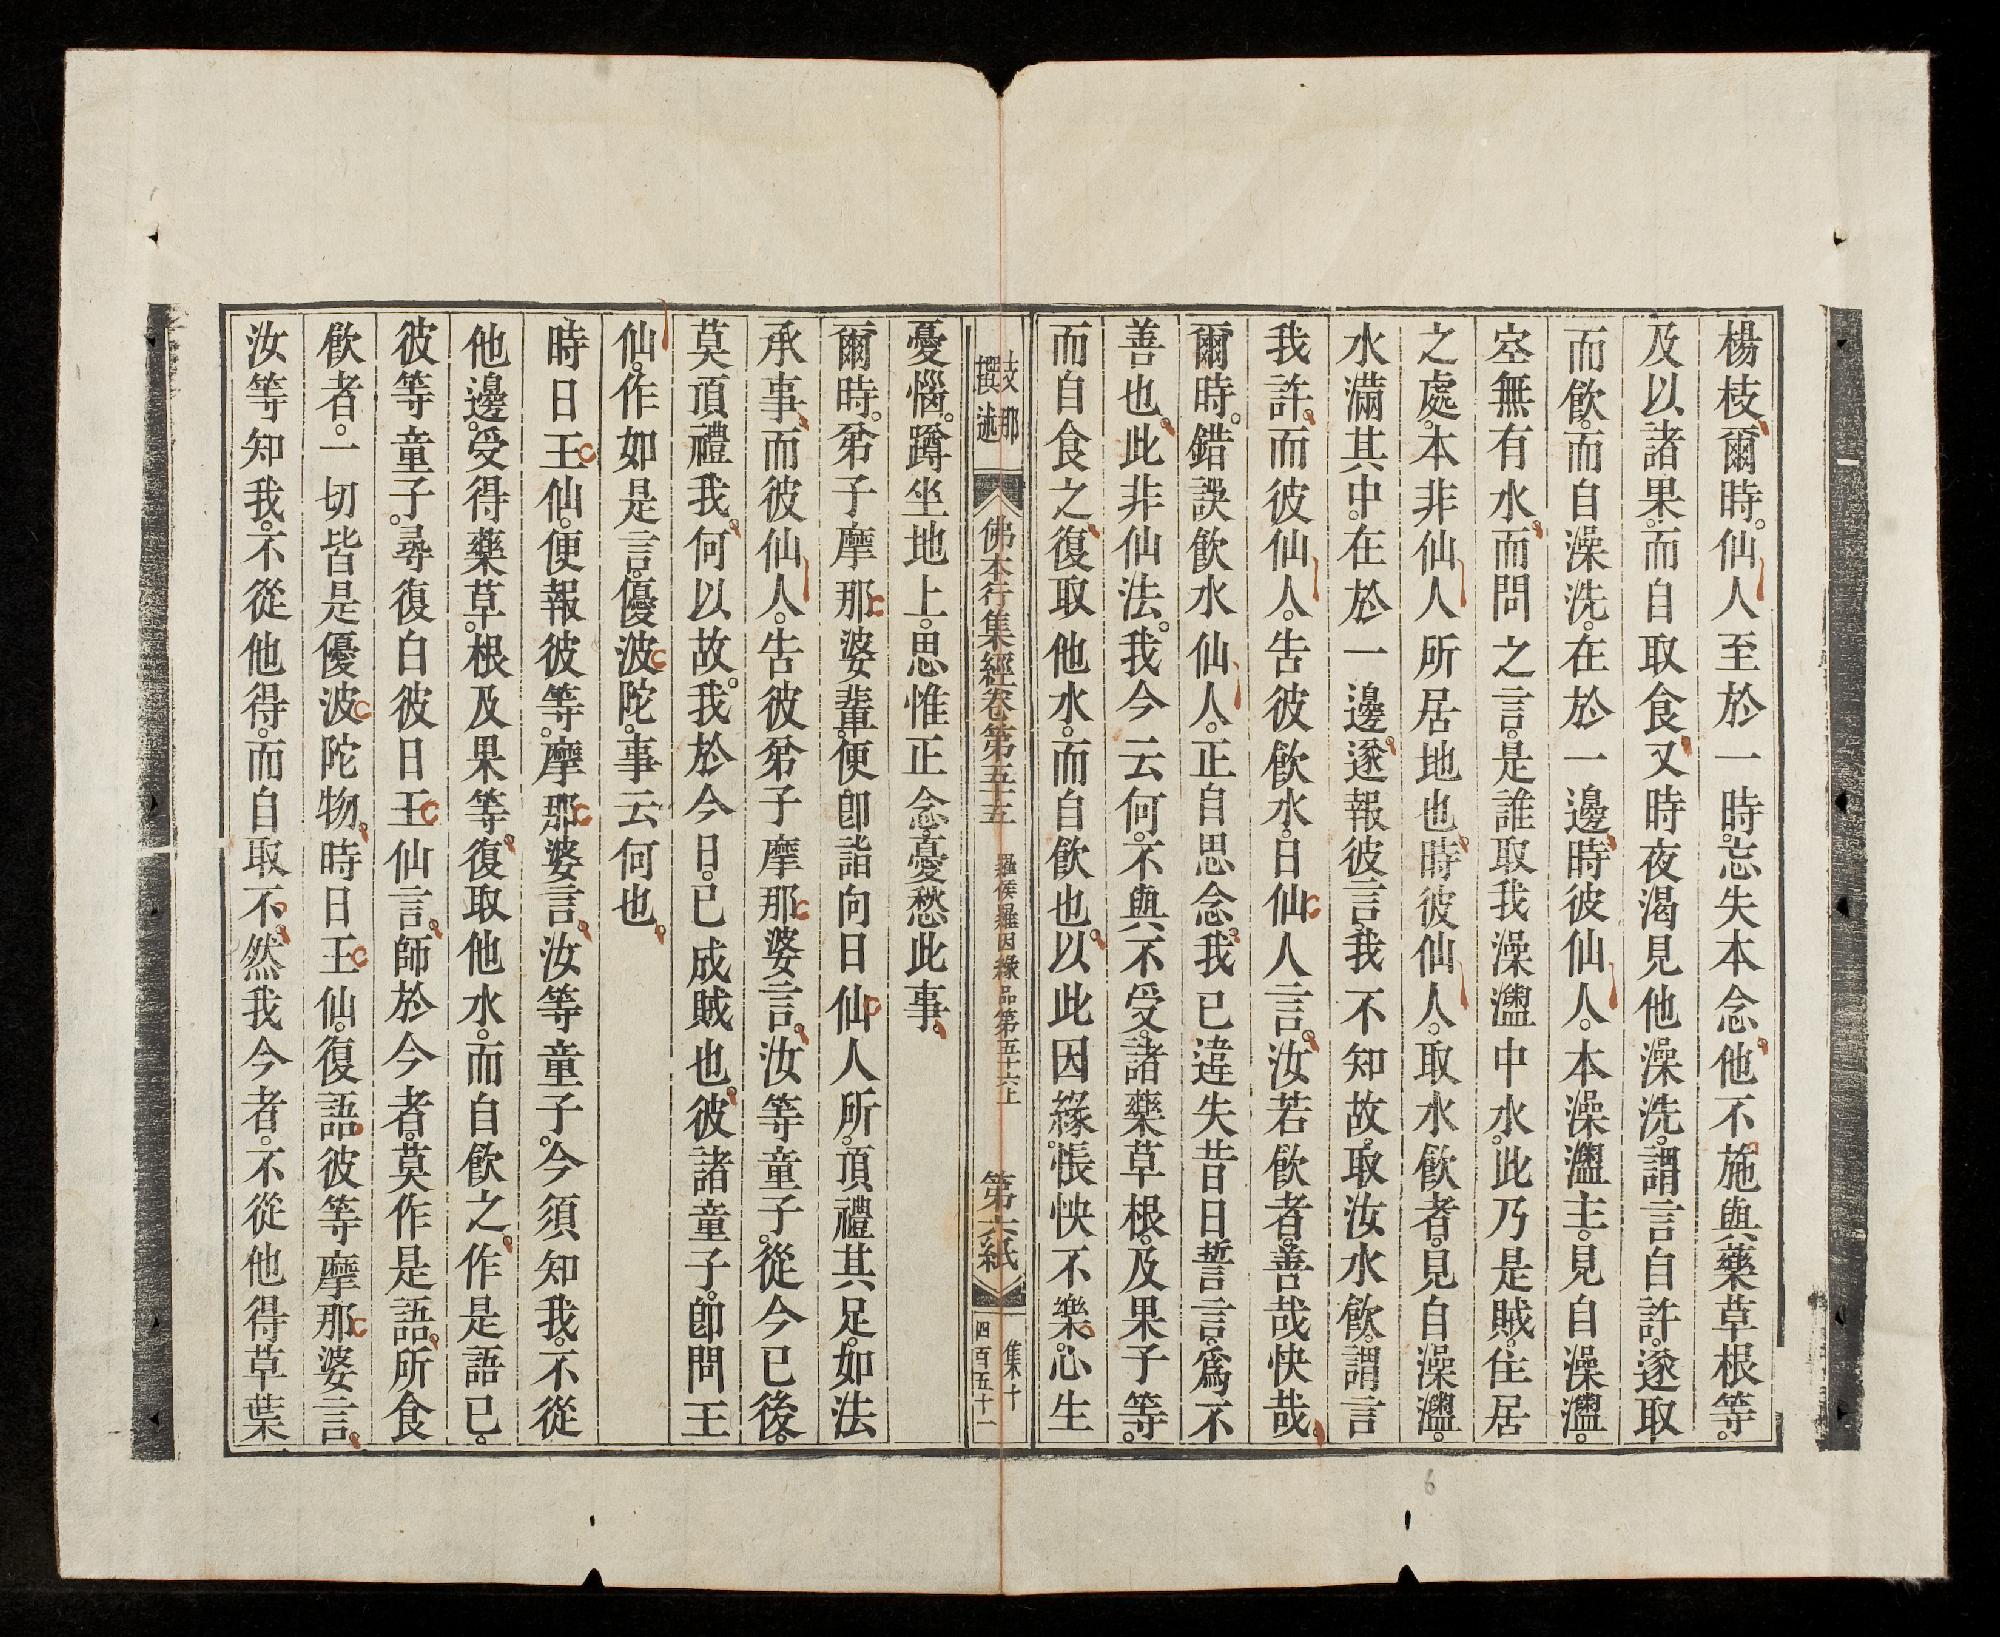 楊枝爾時仙人至於一時忘失本念他不施與藥草根等
及以諸果而自取食又時夜渴見他澡洗謂言自許遂取
而飲而自澡洗在於一邊時彼仙人本澡灆主見自澡灆
空無有水而問之言是誰取我澡灆中水此乃是賊住居
之處本非仙人所居地也時彼仙人取水飲者見自澡灆
水滿其中在於一邊遂報彼言我不知故取汝水飲謂言
我許而彼仙人告彼飲水日仙人言汝若飲者善哉快哉
爾時錯誤飲水仙人正自思念我已違失昔日誓言爲不
善也此非仙法我今云何不與不受諸藥草根及果子等
而自食之復取他水而自飲也以此因緣悵怏不樂心生
支那
撰述
佛本行集經卷第五十五
羅睺羅因緣品第五十六上
第六紙
集十
四百五十一
憂惱蹲坐地上思惟正念憂愁此事
爾時弟子摩那婆輩便卽詣向日仙人所頂禮其足如法
承事而彼仙人告彼弟子摩那婆言汝等童子從今已後
莫頂禮我何以故我於今日已成賊也彼諸童子卽問王
仙作如是言優波陀事云何也
時日王仙便報彼等摩那婆言汝等童子今須知我不從
他邊受得藥草根及果等復取他水而自飲之作是語已
彼等童子尋復白彼日王仙言師於今者莫作是語所食
飲者一切皆是優波陀物時日王仙復語彼等摩那婆言
汝等知我不從他得而自取不然我今者不從他得草葉
6